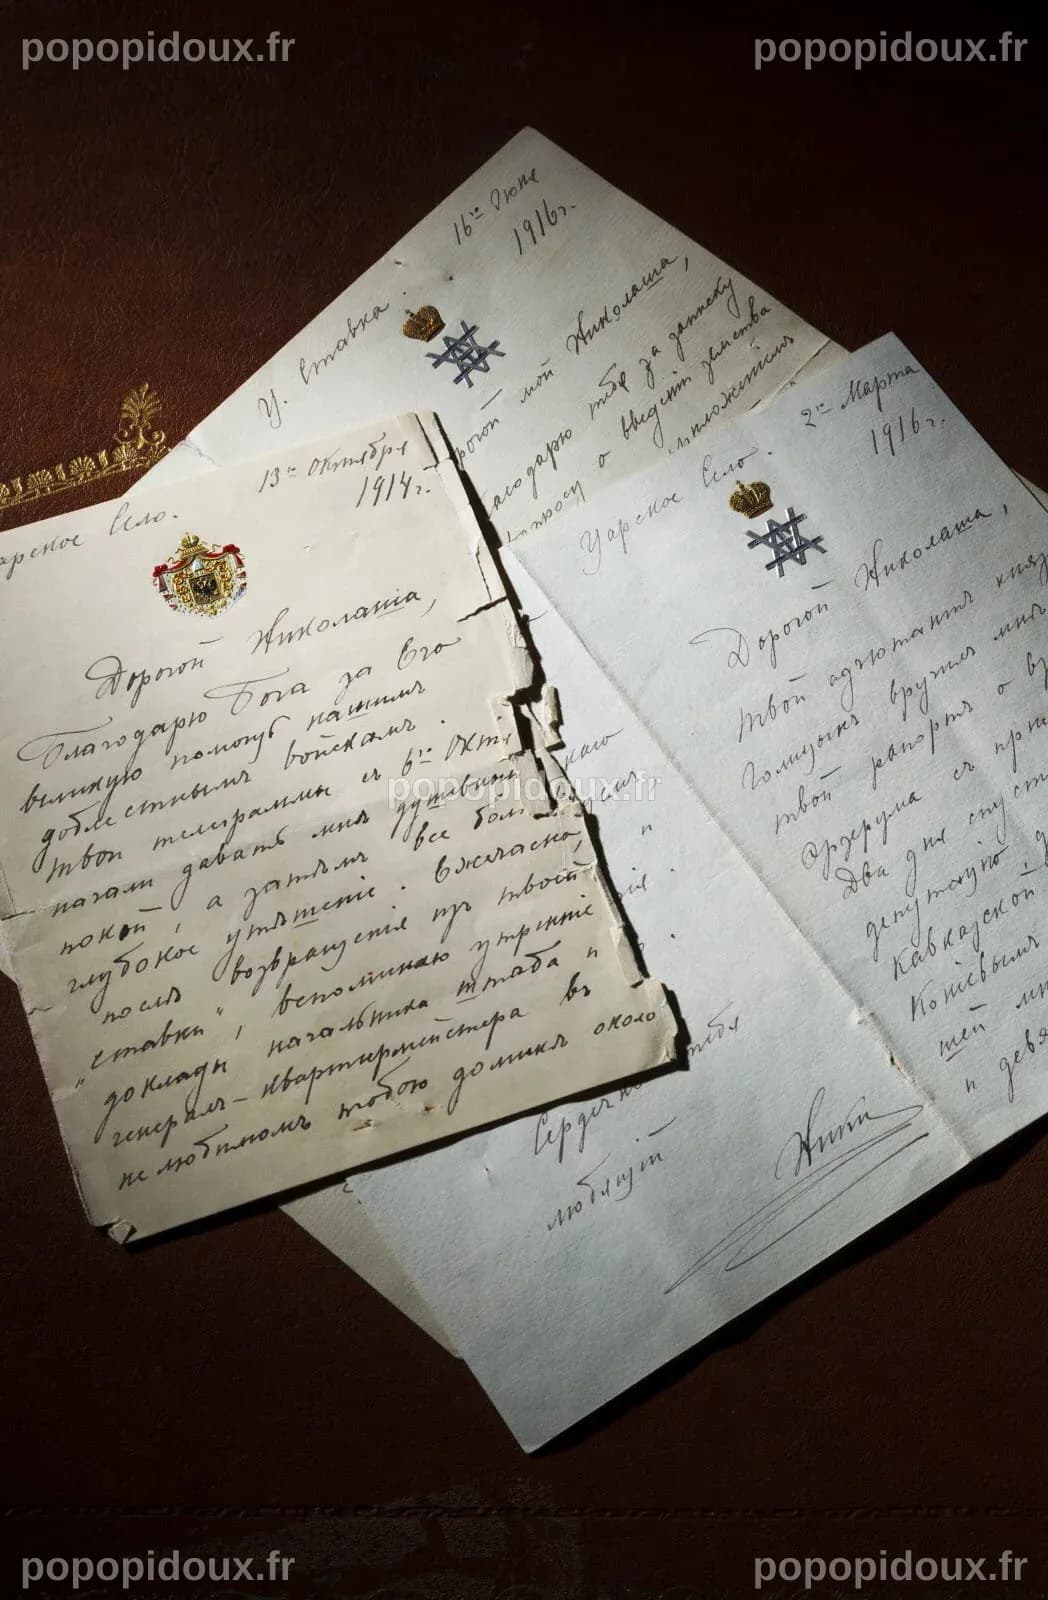 popopidoux.fr popopidoux.fr
16го Июня
1916г.
Ц. Ставка.
мой Николаша,
тебя за записку
о введеніи земства
13го Октября
1914г.
Село.
Дорогой Николаша,
Благодарю Бога за Его
великую помощь нашимъ
доблестнымъ войскамъ.
Твои телеграммы съ 6го Окт
начали давать мнѣ душевный
покой, а затѣмъ все бол
глубокое утѣшеніе. Ежечасно,
послѣ возвращенія изъ твоей
"ставки", вспоминаю утренніе
доклады начальника штаба и
генералъ-квартирмейстера въ
нелюбимомъ тобою домикѣ около
2го Марта
1916г.
Царское Село.
Дорогой Николаша,
Твой адъютантъ княз
Голицынъ вручилъ мнѣ
твой рапортъ о вз
Эрзерума съ при
Два дня спуст
депутацію
Кавказской
шей
и девя
тебя
Сердечно
любящій
Ники
popopidoux.fr
popopidoux.fr popopidoux.fr